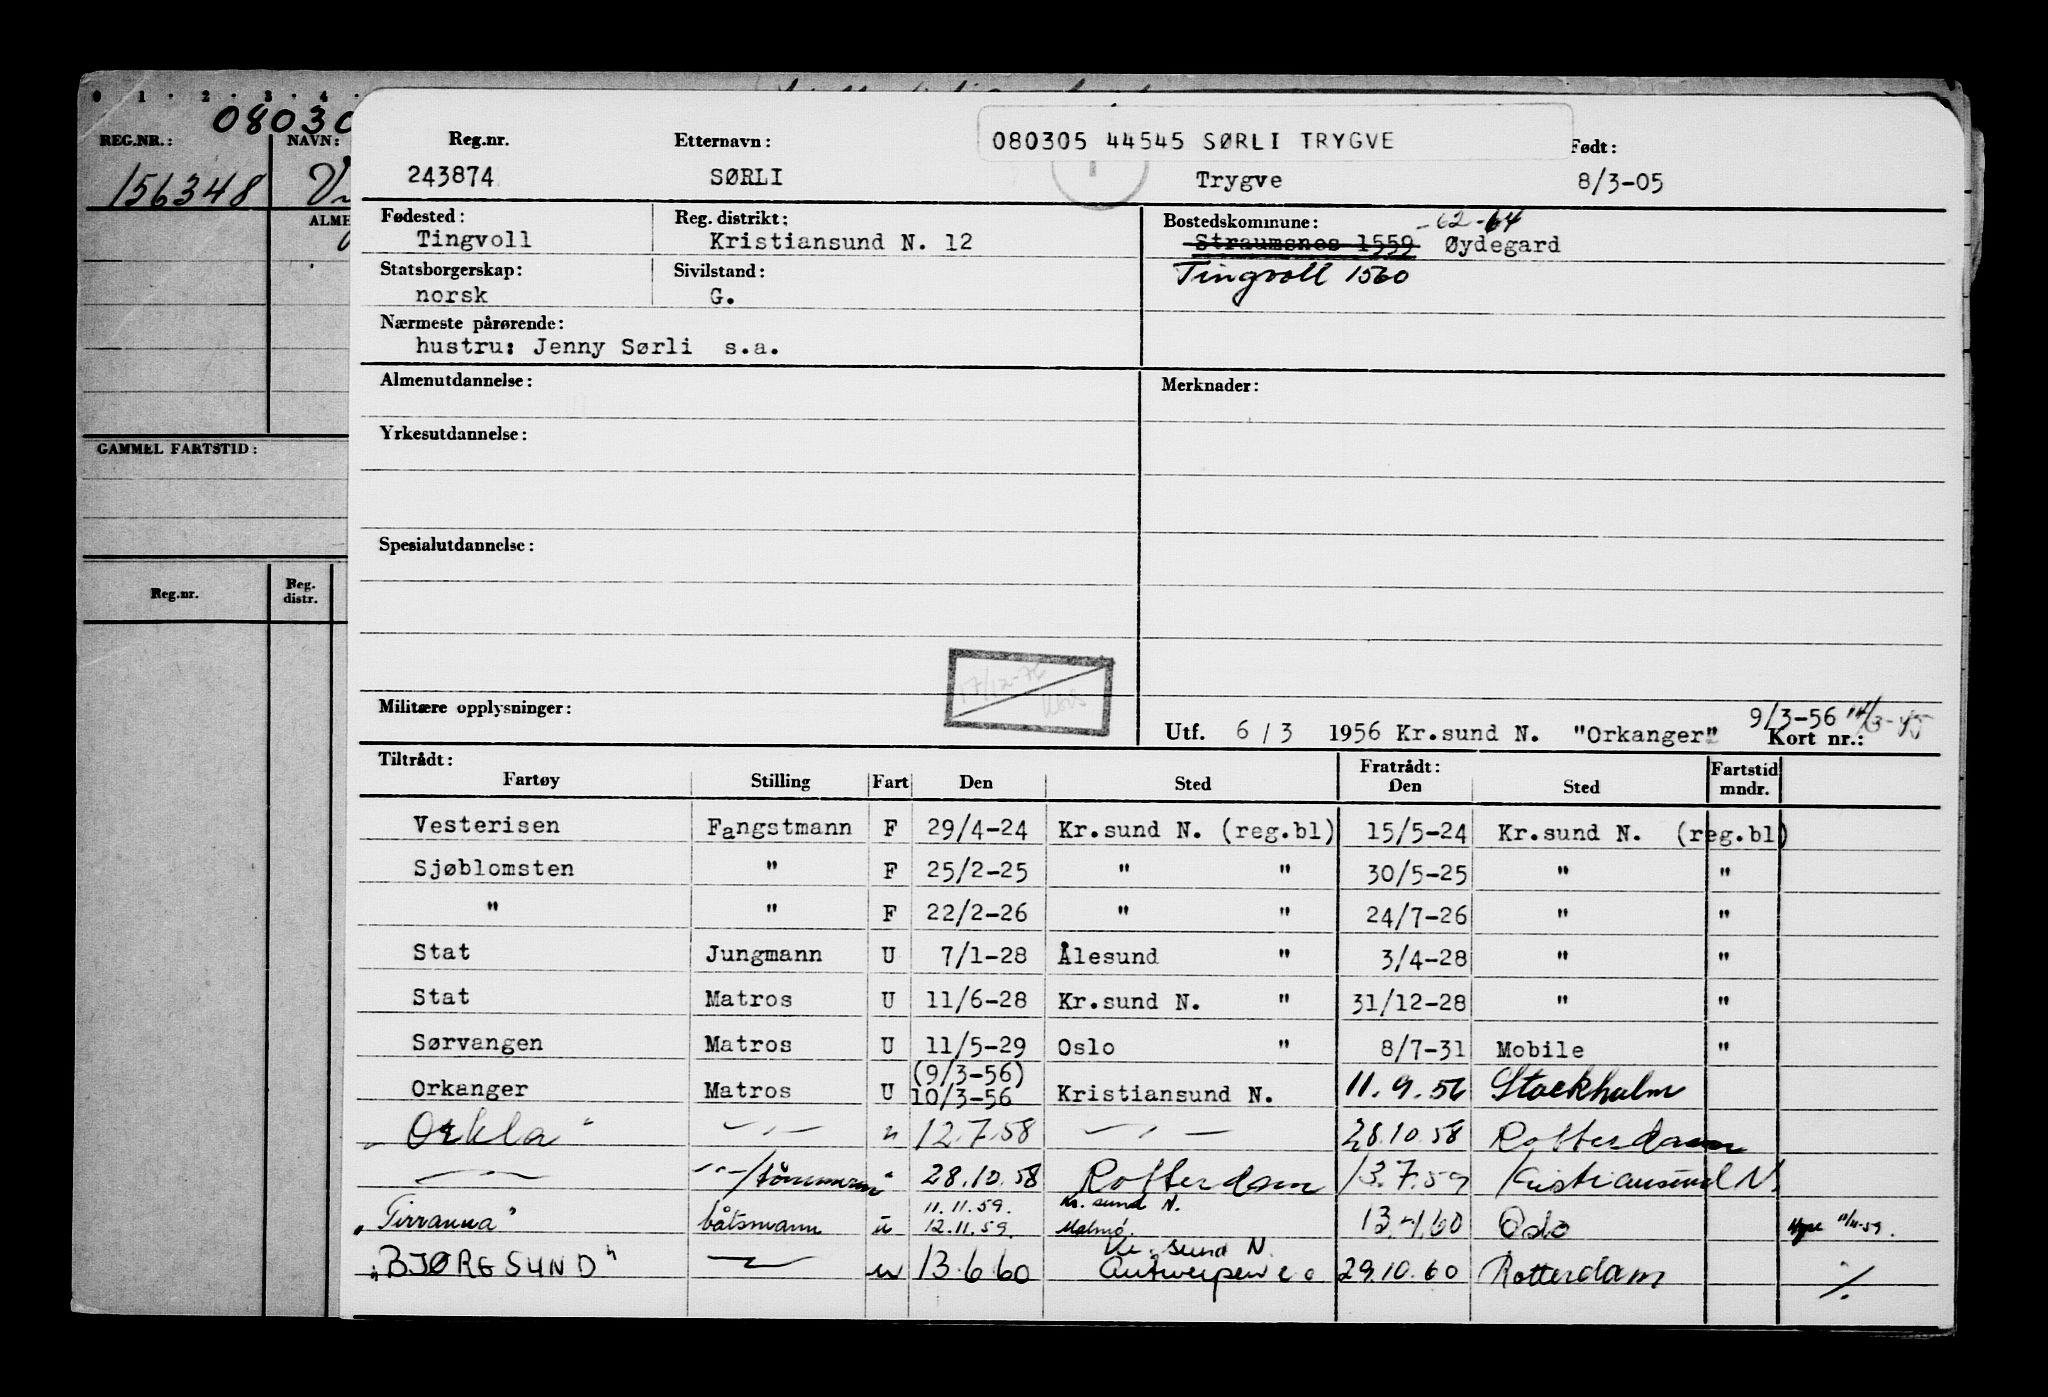 0 1 2 3 4
08030
REG.NR.: NAVN:
156348
ALME
GAMMEL FARTSTID:
Reg.nr. Reg. distr.
080305 44545 SØRLI TRYGVE
Reg.nr. Etternavn: Født:
243874 SØRLI Trygve 8/3-05
Fødested: Reg. distrikt: Bostedskommune: -62-64
Tingvoll Kristiansund N. 12 Straumsnes 1559 Øydegard
Statsborgerskap: Sivilstand: Tingvoll 1560
norsk G.
Nærmeste pårørende:
hustru: Jenny Sørli s.a.
Almenutdannelse: Merknader:
Yrkesutdannelse:
Spesialutdannelse:
17/12-76
Militære opplysninger:
9/3-56
Utf. 6/3 1956 Kr.sund N. "Orkanger" Kort nr.:
Tiltrådt: Fratrådt: Fartstid
Fartøy Stilling Fart Den Sted Den Sted mndr.
Vesterisen Fangstmann F 29/4-24 Kr.sund N. (reg.bl) 15/5-24 Kr.sund N. (reg.bl)
Sjøblomsten " F 25/2-25 " " 30/5-25 " "
" " F 22/2-26 " " 24/7-26 " "
Stat Jungmann U 7/1-28 Ålesund " 3/4-28 " "
Stat Matros U 11/6-28 Kr.sund N. " 31/12-28 " "
Sørvangen Matros U 11/5-29 Oslo " 8/7-31 Mobile "
(9/3-56)
Orkanger Matros U 10/3-56 Kristiansund N. 11.9.56 Stockholm
"Orkla" —"— " 12.7.58 —"— 28.10.58 Rotterdam
—"— —"—/tømmerm " 28.10.58 Rotterdam 13.7.59 Kristiansund N
11.11.59. Kr. sund N.
"Tirranna" båtsmann u 12.11.59. Malmö 13.4.60 Oslo 11/11-59.
Kr. sund N.
"BJØRGSUND" —"— u 13.6.60 Antwerpen e.o 29.10.60 Rotterdam ./.